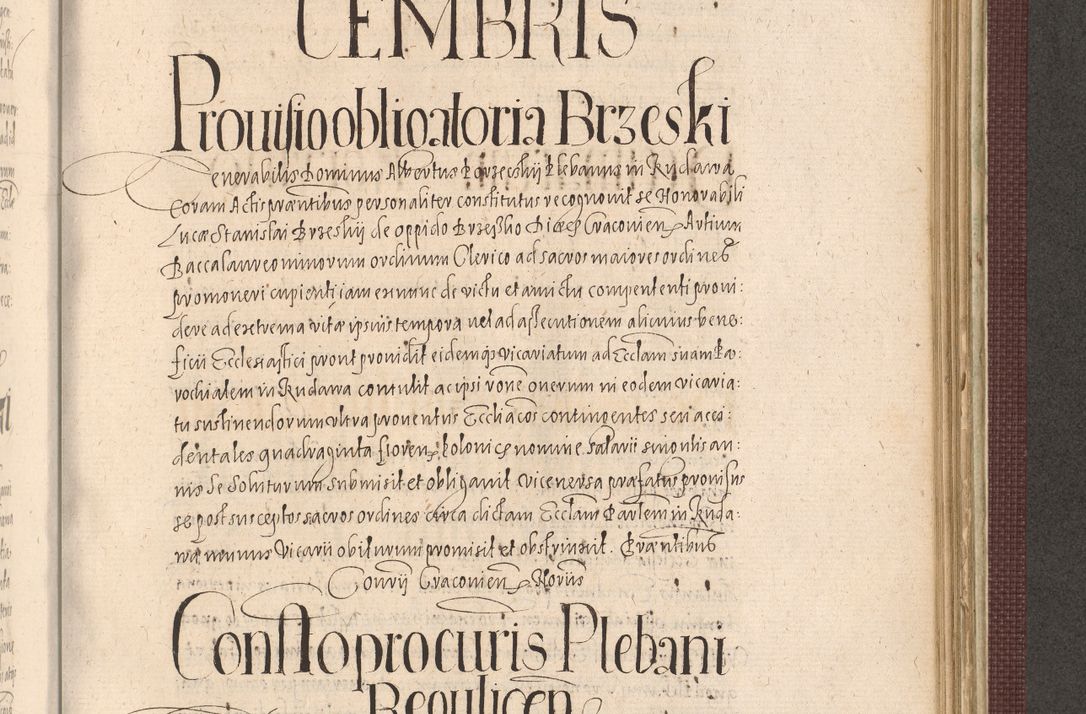 CEMBRIS
Prouisio obligatoria Brzeski
Venerabilis Dominus Albertus Porzeczkij Plebanus in Rudawa
Coram Actis præntibus personaliter constitutus recognovit se Honorabili
Lucæ Stanislai Brzeskij de oppido Brzesko Diœc Cracovien Artium
Baccalaureo minorum ordinum Clerico ad sacros maiores ordines
promoveri cupienti iam ex nunc de victu et amictu compententi provi:
dere ad extrema vitæ ipsius tempora vel ad assecutionem alicuius bene:
ficii Ecclesiastici prout providit eidemq vicariatum ad Ecclam suam Pa:
rochialem in Rudawa contulit ac ipsi rone onerum in eodem vicaria:
tu sustinendorum ultra proventus Ecclicos contingentes seu acci:
dentales quadraginta floren Poloni nomine salarii singulis an:
nis se soluturum submisit et obligavit vice versa præfatus provisus
se post susceptos sacros ordines circa dictam Ecclam Parlem in Ruda:
wa munus Vicarii obiturum promisit et obstrinxit. Præntibus
Convij Cracovien Noriis
Constto procuris Plebani
Regulicen